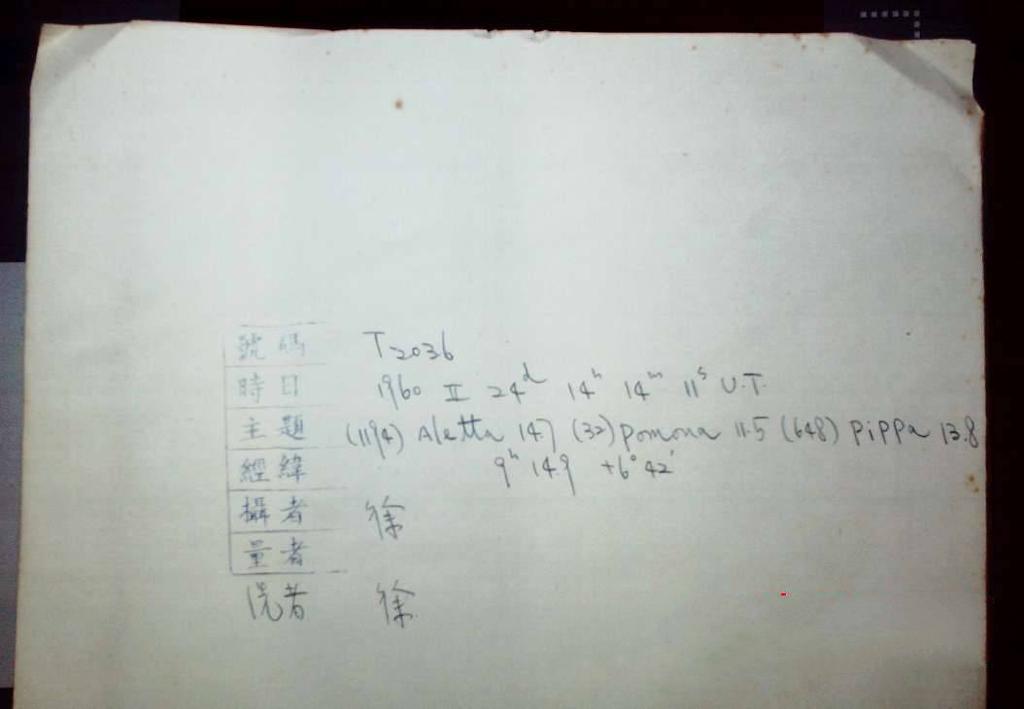 號碼 T2036
時日 1960 II 24d 14h 14m 11s U.T.
主題 (1194) Aletta 14.7 (32) Pomona 11.5 (648) Pippa 13.8
經緯 9h 14.9 +6° 42'
攝者 徐
量者
洗者 徐